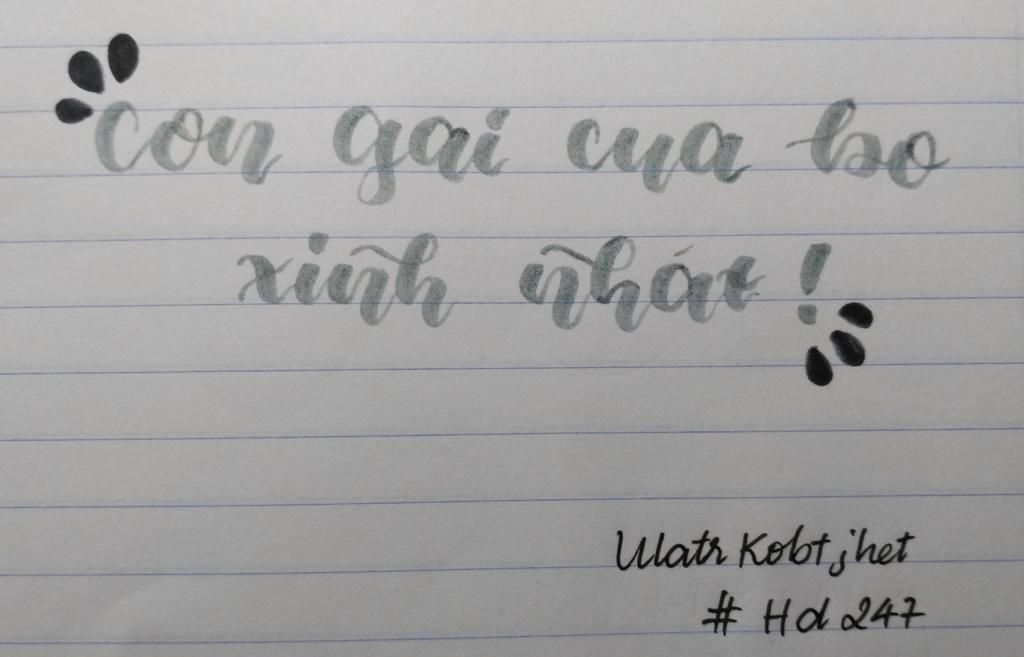 Con gai cua bo
xinh nhát !
Ulatr Kobt jhet
# Hd 247